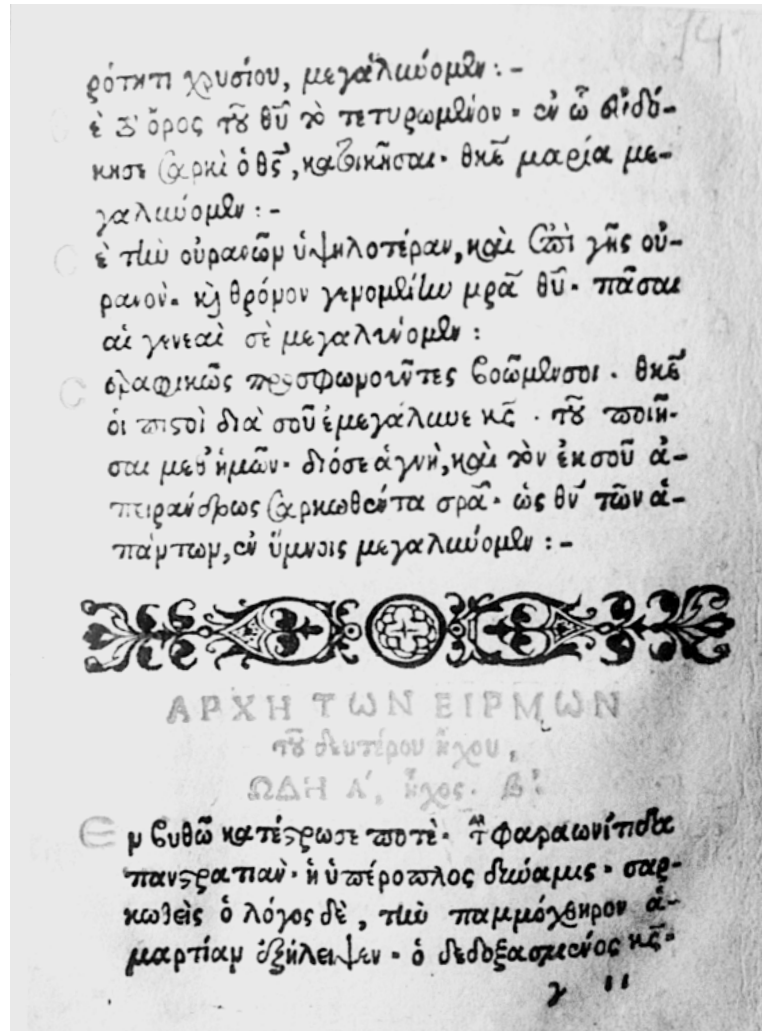 ρότητι χρυσίου, μεγαλύνομεν :-
ὲ τὸ ὄρος τοῦ θῦ τὸ τετυρωμένον· ἐν ᾧ εὐδό-
κησε σαρκὶ ὁ θς̃, κατοικῆσαι· θκε̃ μαρία με-
γαλύνομεν :-
ὲ τὴν οὐρανῶν ὑψηλοτέραν, καὶ ἐπὶ γῆς οὐ-
ρανὸν· κὶ θρόνον γενομένην μρᾶ θῦ· πᾶσαι
αἱ γενεαὶ σὲ μεγαλύνομεν :
σραφικῶς προσφωνοῦντες βοῶμενσοι· θκε̃
οἱ πιστοὶ διὰ σοῦ ἐμεγάλυνε κς̃· τοῦ ποιῆ-
σαι μεθ' ἡμῶν· διόσε ἁγνὴ, καὶ τὸν ἐκ σοῦ ἀ-
πειράνδρως σαρκωθέντα σρᾶ· ὡς θν̃ τῶν ἁ-
πάντων, ἐν ὕμνοις μεγαλύνομεν :-
ΑΡΧΗ ΤΩΝ ΕΙΡΜΩΝ
τοῦ δευτέρου ἤχου,
ΩΔΗ Α', ἦχος· β':
Εν βυθῷ κατέστρωσε ποτὲ· τὴν φαραωνίτιδα
πανστρατιὰν· ἡ ὑπέροπλος δύναμις· σαρ-
κωθεὶς ὁ λόγος δὲ, τὴν παμμόχθηρον ἁ-
μαρτίαν ἐξήλειψεν· ὁ δεδοξασμένος κς̃·
γ ιι